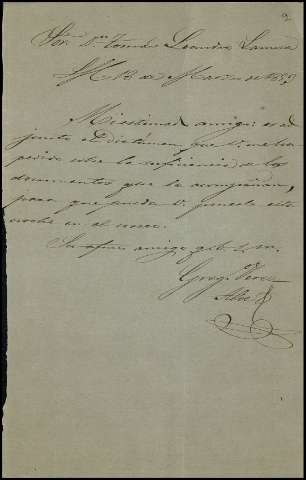 Sor. Dn. Tomás Leandro
S/C 13 de Marzo de
Mi estimado amigo: es ad
junto el Dictámen que V. me ha
pedido sobre la suficiencia de los
documentos que la acompañan,
para que pueda V. ponerlo esta
noche en el correo.
Su afmo. amigo q. b. s. m.
Greg.